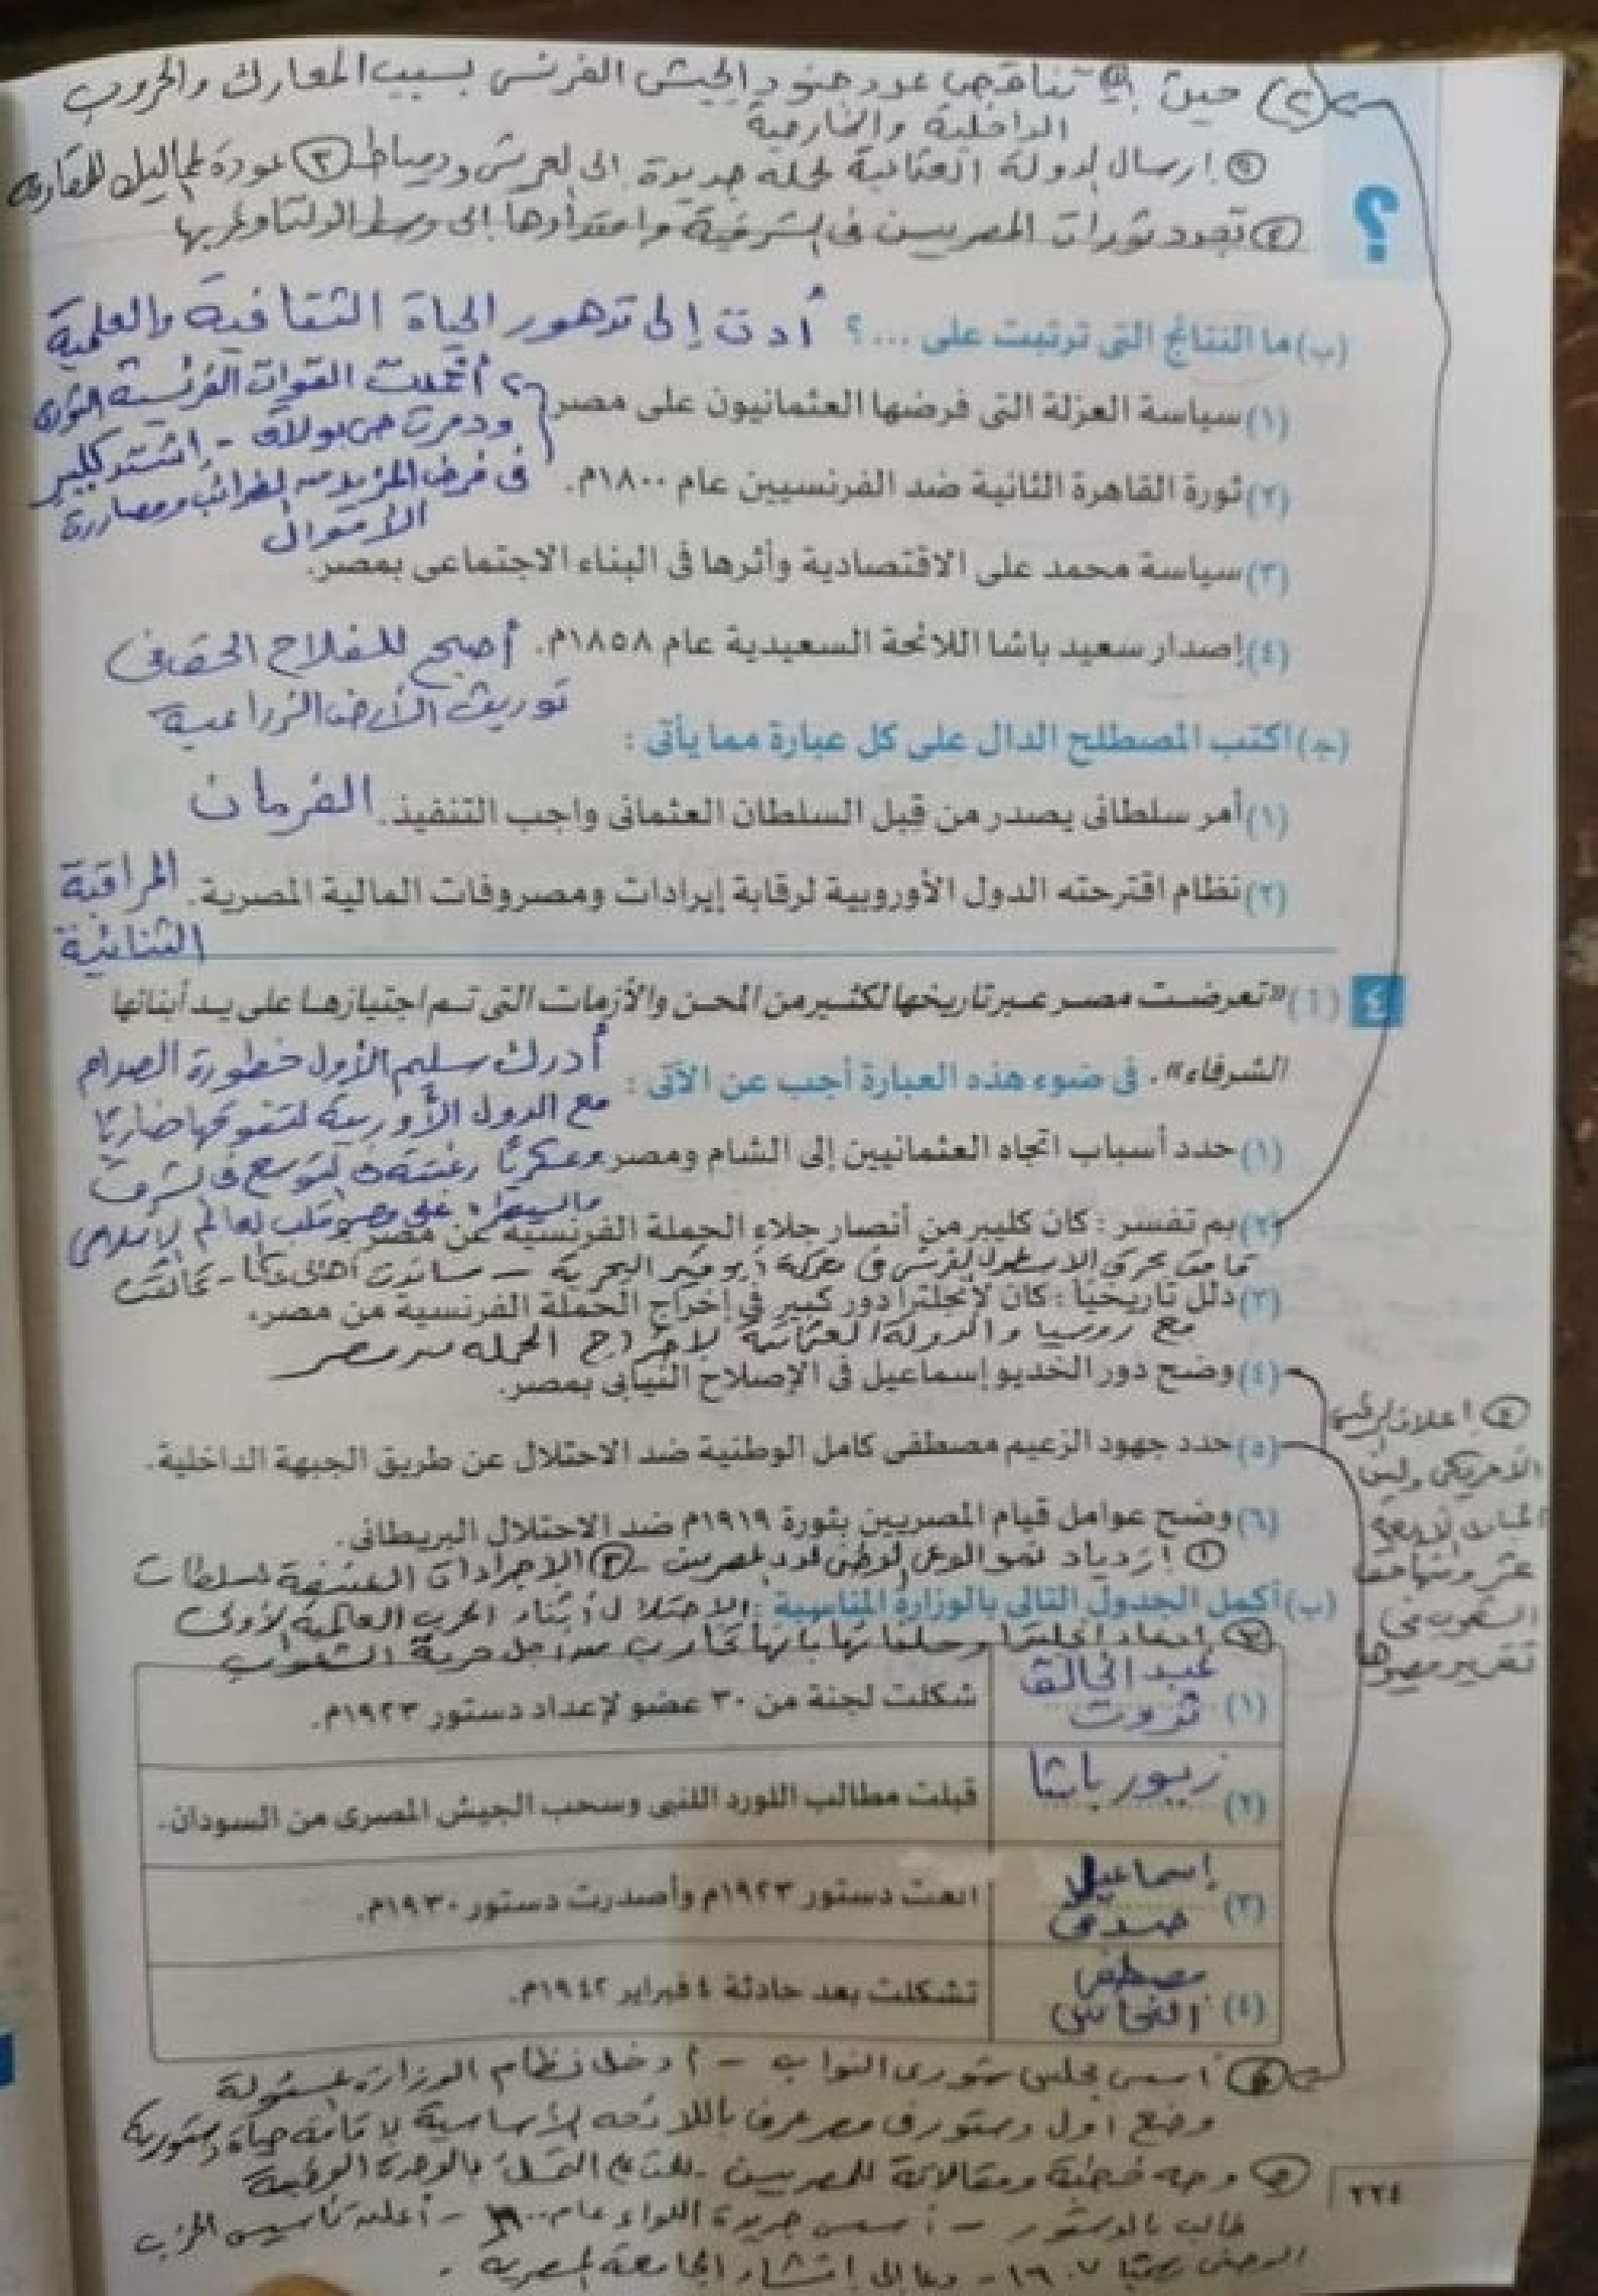 (٢) حيث ① تناقص عدد جنود الجيش الفرنسى بسبب المعارك والحروب
الداخلية والخارجية
② إرسال الدولة العثمانية لحملة جديدة إلى العريش ودمياط ③ عودة المماليك
④ تجدد ثورات المصريين فى الشرقية وامتدادها إلى وسط الدلتا وغربها
؟
(ب) ما النتائج التى ترتبت على ...؟ أدت إلى تدهور الحياة الثقافية والعلمية
(١) سياسة العزلة التى فرضها العثمانيون على مصر
٢ أخمدت القوات الفرنسية الثورة
ودمرت حى بولاق - اشتد كليبر
(٢) ثورة القاهرة الثانية ضد الفرنسيين عام ١٨٠٠م.
فى فرض المزيد من الضرائب ومصادرة
الأموال
(٣) سياسة محمد على الاقتصادية وأثرها فى البناء الاجتماعى بمصر.
(٤) إصدار سعيد باشا اللائحة السعيدية عام ١٨٥٨م. أصبح للفلاح الحق فى
توريث الأرض الزراعية
(جـ) اكتب المصطلح الدال على كل عبارة مما يأتى :
(١) أمر سلطانى يصدر من قِبل السلطان العثمانى واجب التنفيذ. الفرمان
(٢) نظام اقترحته الدول الأوروبية لرقابة إيرادات ومصروفات المالية المصرية. المراقبة
الثنائية
٤ (أ) «تعرضت مصر عبر تاريخها لكثير من المحن والأزمات التى تم اجتيازها على يد أبنائها
الشرفاء». فى ضوء هذه العبارة أجب عن الآتى :
أدرك سليم الأول خطورة الصدام
مع الدول الأوربية لتفوقها حضاريًا
(١) حدد أسباب اتجاه العثمانيين إلى الشام ومصر
وعسكريًا رغبته فى التوسع فى الشرق
والسيطرة على مصر قلب العالم الإسلامى
(٢) بم تفسر : كان كليبر من أنصار جلاء الحملة الفرنسية عن مصر
قامت بحرق الأسطول الفرنسى فى معركة أبو قير البحرية - ساندت أهالى عكا - تحالفت
(٣) دلل تاريخيًا : كان لإنجلترا دور كبير فى إخراج الحملة الفرنسية من مصر.
مع روسيا والدولة العثمانية لإخراج الحملة من مصر
(٤) وضح دور الخديو إسماعيل فى الإصلاح النيابى بمصر.
(٥) حدد جهود الزعيم مصطفى كامل الوطنية ضد الاحتلال عن طريق الجبهة الداخلية.
(٦) وضح عوامل قيام المصريين بثورة ١٩١٩م ضد الاحتلال البريطانى.
① ازدياد نمو الوعى الوطنى لدى المصريين - ② الإجراءات التعسفية لسلطات
(ب) أكمل الجدول التالى بالوزارة المناسبة : الاحتلال أثناء الحرب العالمية الأولى
③ ادعاء إنجلترا وحلفائها بأنها تحارب من أجل حرية الشعوب
④ إعلان الرئيس
الأمريكى ولسن
المبادئ الأربعة
عشر ومنها حق
الشعوب فى
تقرير مصيرها
(١) عبد الخالق ثروت
شكلت لجنة من ٣٠ عضو لإعداد دستور ١٩٢٣م.
(٢) زيور باشا
قبلت مطالب اللورد اللنبى وسحب الجيش المصرى من السودان.
(٣) إسماعيل صدقى
ألغت دستور ١٩٢٣م وأصدرت دستور ١٩٣٠م.
(٤) مصطفى النحاس
تشكلت بعد حادثة ٤ فبراير ١٩٤٢م.
④ أسس مجلس شورى النواب - أدخل نظام الوزارة المسئولة
وضع أول دستور فى مصر عرف باللائحة الأساسية لإقامة حياة دستورية
⑤ وجه خطبه ومقالاته للمصريين التمسك بالوحدة الوطنية
طالب بالدستور - أسس جريدة اللواء عام ١٩٠٠ - أعلن تأسيس الحزب
الوطنى رسميًا ١٩٠٧ - دعا إلى إنشاء الجامعة المصرية.
٢٢٤